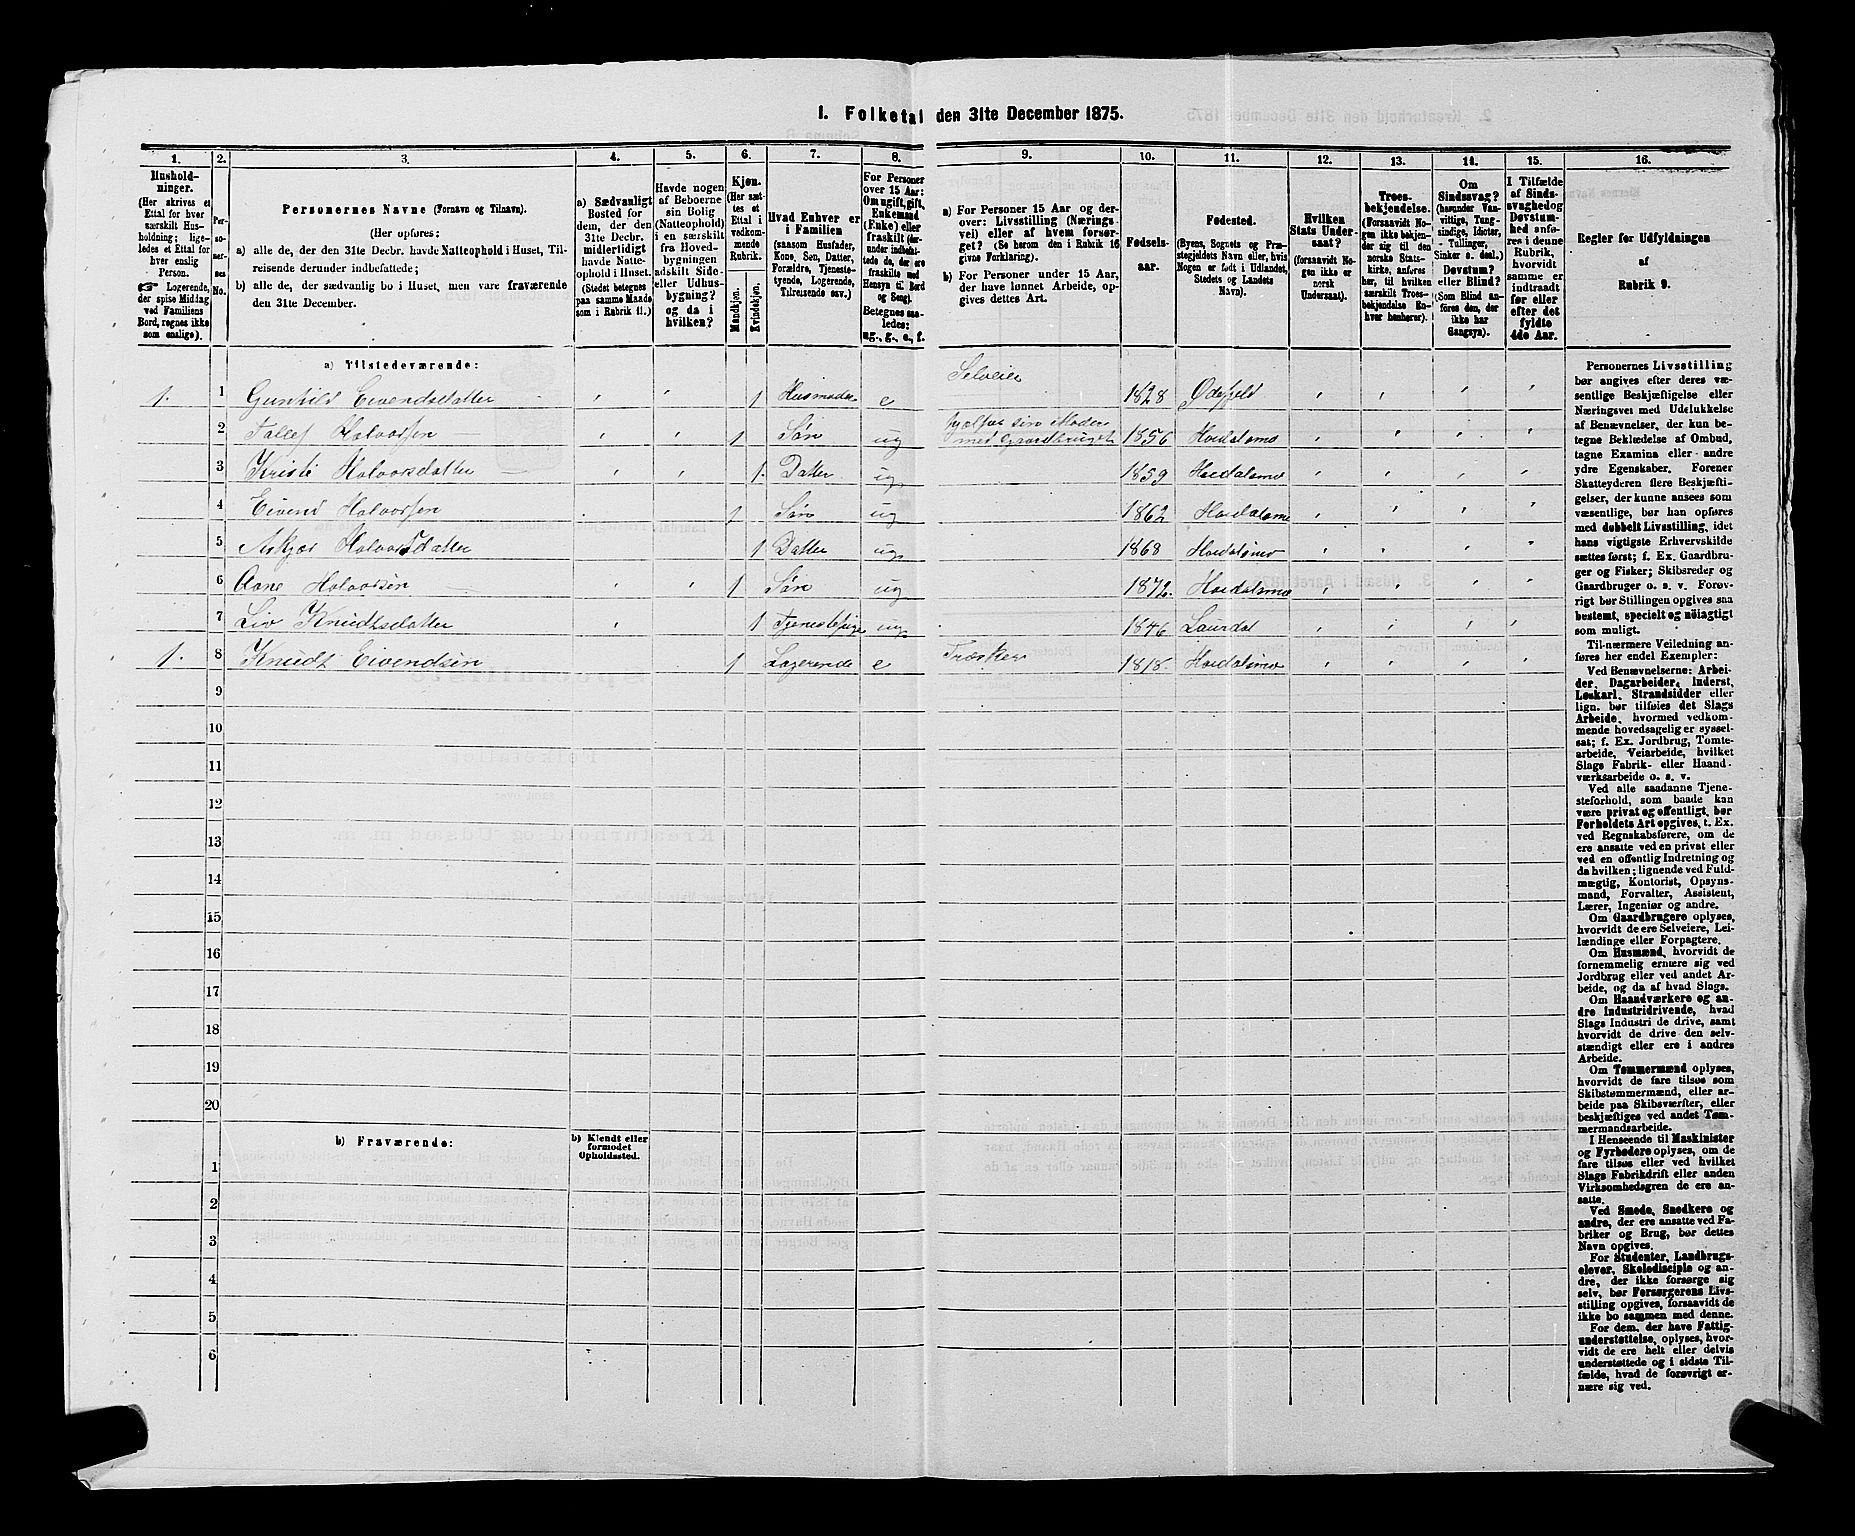 1. Folketal den 31te December 1875.
1. 2. 3. 4. 5. 6. 7. 8. 9. 10. 11. 12. 13. 14. 15. 16.
Hushold-
ninger.
(Her skrives et
Ettal for hver
særskilt Hus-
holdning; lige-
ledes et Ettal for
hver enslig
Person.
☞ Logerende,
der spise Middag
ved Familiens
Bord, regnes ikke
som enslige).
Per-
so-
ner-
nes
No.
Personernes Navne (Fornavn og Tilnavn).
(Her opføres:
a) alle de, der den 31te Decbr. havde Natteophold i Huset, Til-
reisende derunder indbefattede;
b) alle de, der sædvanlig bo i Huset, men vare fraværende
den 31te December.
a) Sædvanligt
Bosted for
dem, der den
31te Decbr.
midlertidigt
havde Natte-
ophold i Huset.
(Stedet betegnes
paa samme Maade
som i Rubrik 11.)
Havde nogen
af Beboerne
sin Bolig
(Natteophold)
i en særskilt
fra Hoved-
bygningen
adskilt Side-
eller Udhus-
bygning?
og da i
hvilken?
Kjøn.
(Her sæt-
tes et
Ettal i
vedkom-
mende
Rubrik.
Mandkjøn.
Kvindekjøn.
Hvad Enhver er
i Familien
(saasom Husfader,
Kone, Søn, Datter,
Forældre, Tjeneste-
tyende, Logerende,
Tilreisende osv.)
For Personer
over 15 Aar:
Om ugift, gift,
Enkemand
(Enke) eller
fraskilt (der-
under indbefat-
tede de, der ere
fraskilte med
Hensyn til Bord
og Seng).
Betegnes saa-
ledes:
ug., g., e., f.
a) For Personer 15 Aar og der-
over: Livsstilling (Nærings-
vei) eller af hvem forsør-
get? (Se herom den i Rubrik 16
givne Forklaring).
b) For Personer under 15 Aar,
der have lønnet Arbeide, op-
gives dettes Art.
Fødsels-
aar.
Fødested.
(Byens, Sognets og Præ-
stegjeldets Navn eller, hvis
Nogen er født i Udlandet,
Stedets og Landets
Navn).
Hvilken
Stats Under-
saat?
(forsaavidt No-
gen ikke er
norsk
Undersaat).
Troes-
bekjendelse.
(Forsaavidt No-
gen ikke bekjen-
der sig til den
norske Stats-
kirke, anføres
her, til hvilken
særskilt Troes-
bekjendelse En-
hver henhører).
Om
Sindssvag?
(herunder Van-
vittige, Tung-
sindige, Idioter,
Tullinger,
Sinker o. desl.)
Døvstum?
eller Blind?
(Som Blind an-
føres den, der
ikke har
Gangsyn).
I Tilfælde
af Sinds-
svaghed og
Døvstum-
hed anfø-
res i denne
Rubrik,
hvorvidt
samme er
indtraadt
før eller
efter det
fyldte
4de Aar.
Regler for Udfyldningen
af
Rubrik 9.
a) Tilstedeværende:
1. 1 Gunhild Eivendsdatter 1 Husmoder e Selveier 1828
2 Tallef Halvorsen 1 Søn ug hjælper sin Moder med Gaardbruget 1856 Hoidalsmo
3 Halvorsdatter 1. Datter ug 1859 Hoidalsmo
4 Eivend Halvorsen 1 Søn ug 1862 Hoidalsmo
5 Askjer Halvorsdatter 1 Datter ug 1868 Hoidalsmo
6 Aane Halvorsen 1 Søn ug 1872. Hoidalsmo
7 Liv Knudtsdatter 1 Tjenestepige ug 1846 Laurdal
1. 8 Knudt Eivendsen 1 Logerende e 1818. Hoidalsmo
9
10
11
12
13
14
15
16
17
18
19
20
b) Fraværende:
b) Kjendt eller
formodet
Opholdssted.
1
2
3
4
5
6
Personernes Livsstilling
bør angives efter deres væ-
sentlige Beskjæftigelse eller
Næringsvei med Udelukkelse
af Benævnelser, der kun be-
tegne Beklædelse af Ombud,
tagne Examina eller andre
ydre Egenskaber. Forener
Skatteyderen flere Beskjæfti-
gelser, der kunne ansees som
væsentlige, bør han opføres
med dobbelt Livsstilling, idet
hans vigtigste Erhvervskilde
sættes først; f. Ex. Gaardbru-
ger og Fisker; Skibsreder og
Gaardbruger o. s. v. Forøv-
rigt bør Stillingen opgives saa
bestemt, specielt og nøiagtigt
som muligt.
Til nærmere Veiledning an-
føres her endel Exempler:
Ved Benævnelserne: Arbei-
der, Dagarbeider, Inderst,
Løskarl, Strandsidder eller
lign. bør tilføies det Slags
Arbeide, hvormed vedkom-
mende hovedsagelig er syssel-
sat; f. Ex. Jordbrug, Tomte-
arbeide, Veiarbeide, hvilket
Slags Fabrik- eller Haand-
værksarbeide o. s. v.
Ved alle saadanne Tjene-
steforhold, som baade kan
være privat og offentligt, bør
Forholdets Art opgives, t. Ex.
ved Regnskabsførere, om de
ere ansatte ved en privat eller
ved en offentlig Indretning og
da hvilken; lignende ved Fuld-
mægtig, Kontorist, Opsyns-
mand, Forvalter, Assistent,
Lærer, Ingeniør og andre.
Om Gaardbrugere oplyses,
hvorvidt de ere Selveiere, Lei-
lændinge eller Forpagtere.
Om Husmænd, hvorvidt de
fornemmelig ernære sig ved
Jordbrug eller ved andet Ar-
beide, og da af hvad Slags.
Om Haandværkere og an-
dre Industridrivende, hvad
Slags Industri de drive, samt
hvorvidt de drive den selv-
stændigt eller ere i andres
Arbeide.
Om Tømmermænd oplyses,
hvorvidt de fare tilsøs som
Skibstømmermænd, eller ar-
beide paa Skibsværfter, eller
beskjæftiges ved andet Tøm-
mermandsarbeide.
I Henseende til Maskinister
og Fyrbødere oplyses, om de
fare tilsøs eller ved hvilket
Slags Fabrikdrift eller anden
Virksomhedsgren de ere an-
satte.
Ved Smede, Snedkere og
andre, der ere ansatte ved Fa-
briker og Brug, bør dettes
Navn opgives.
For Studenter, Landbrugs-
elever, Skoledisciple og an-
dre, der ikke forsørge sig
selv, bør Forsørgerens Livs-
stilling opgives, forsaavidt de
ikke bo sammen med denne.
For dem, der have Fattig-
understøttelse, oplyses, hvor-
vidt de ere helt eller delvis
understøttede og i sidste Til-
fælde, hvad de forøvrigt er-
nære sig ved.